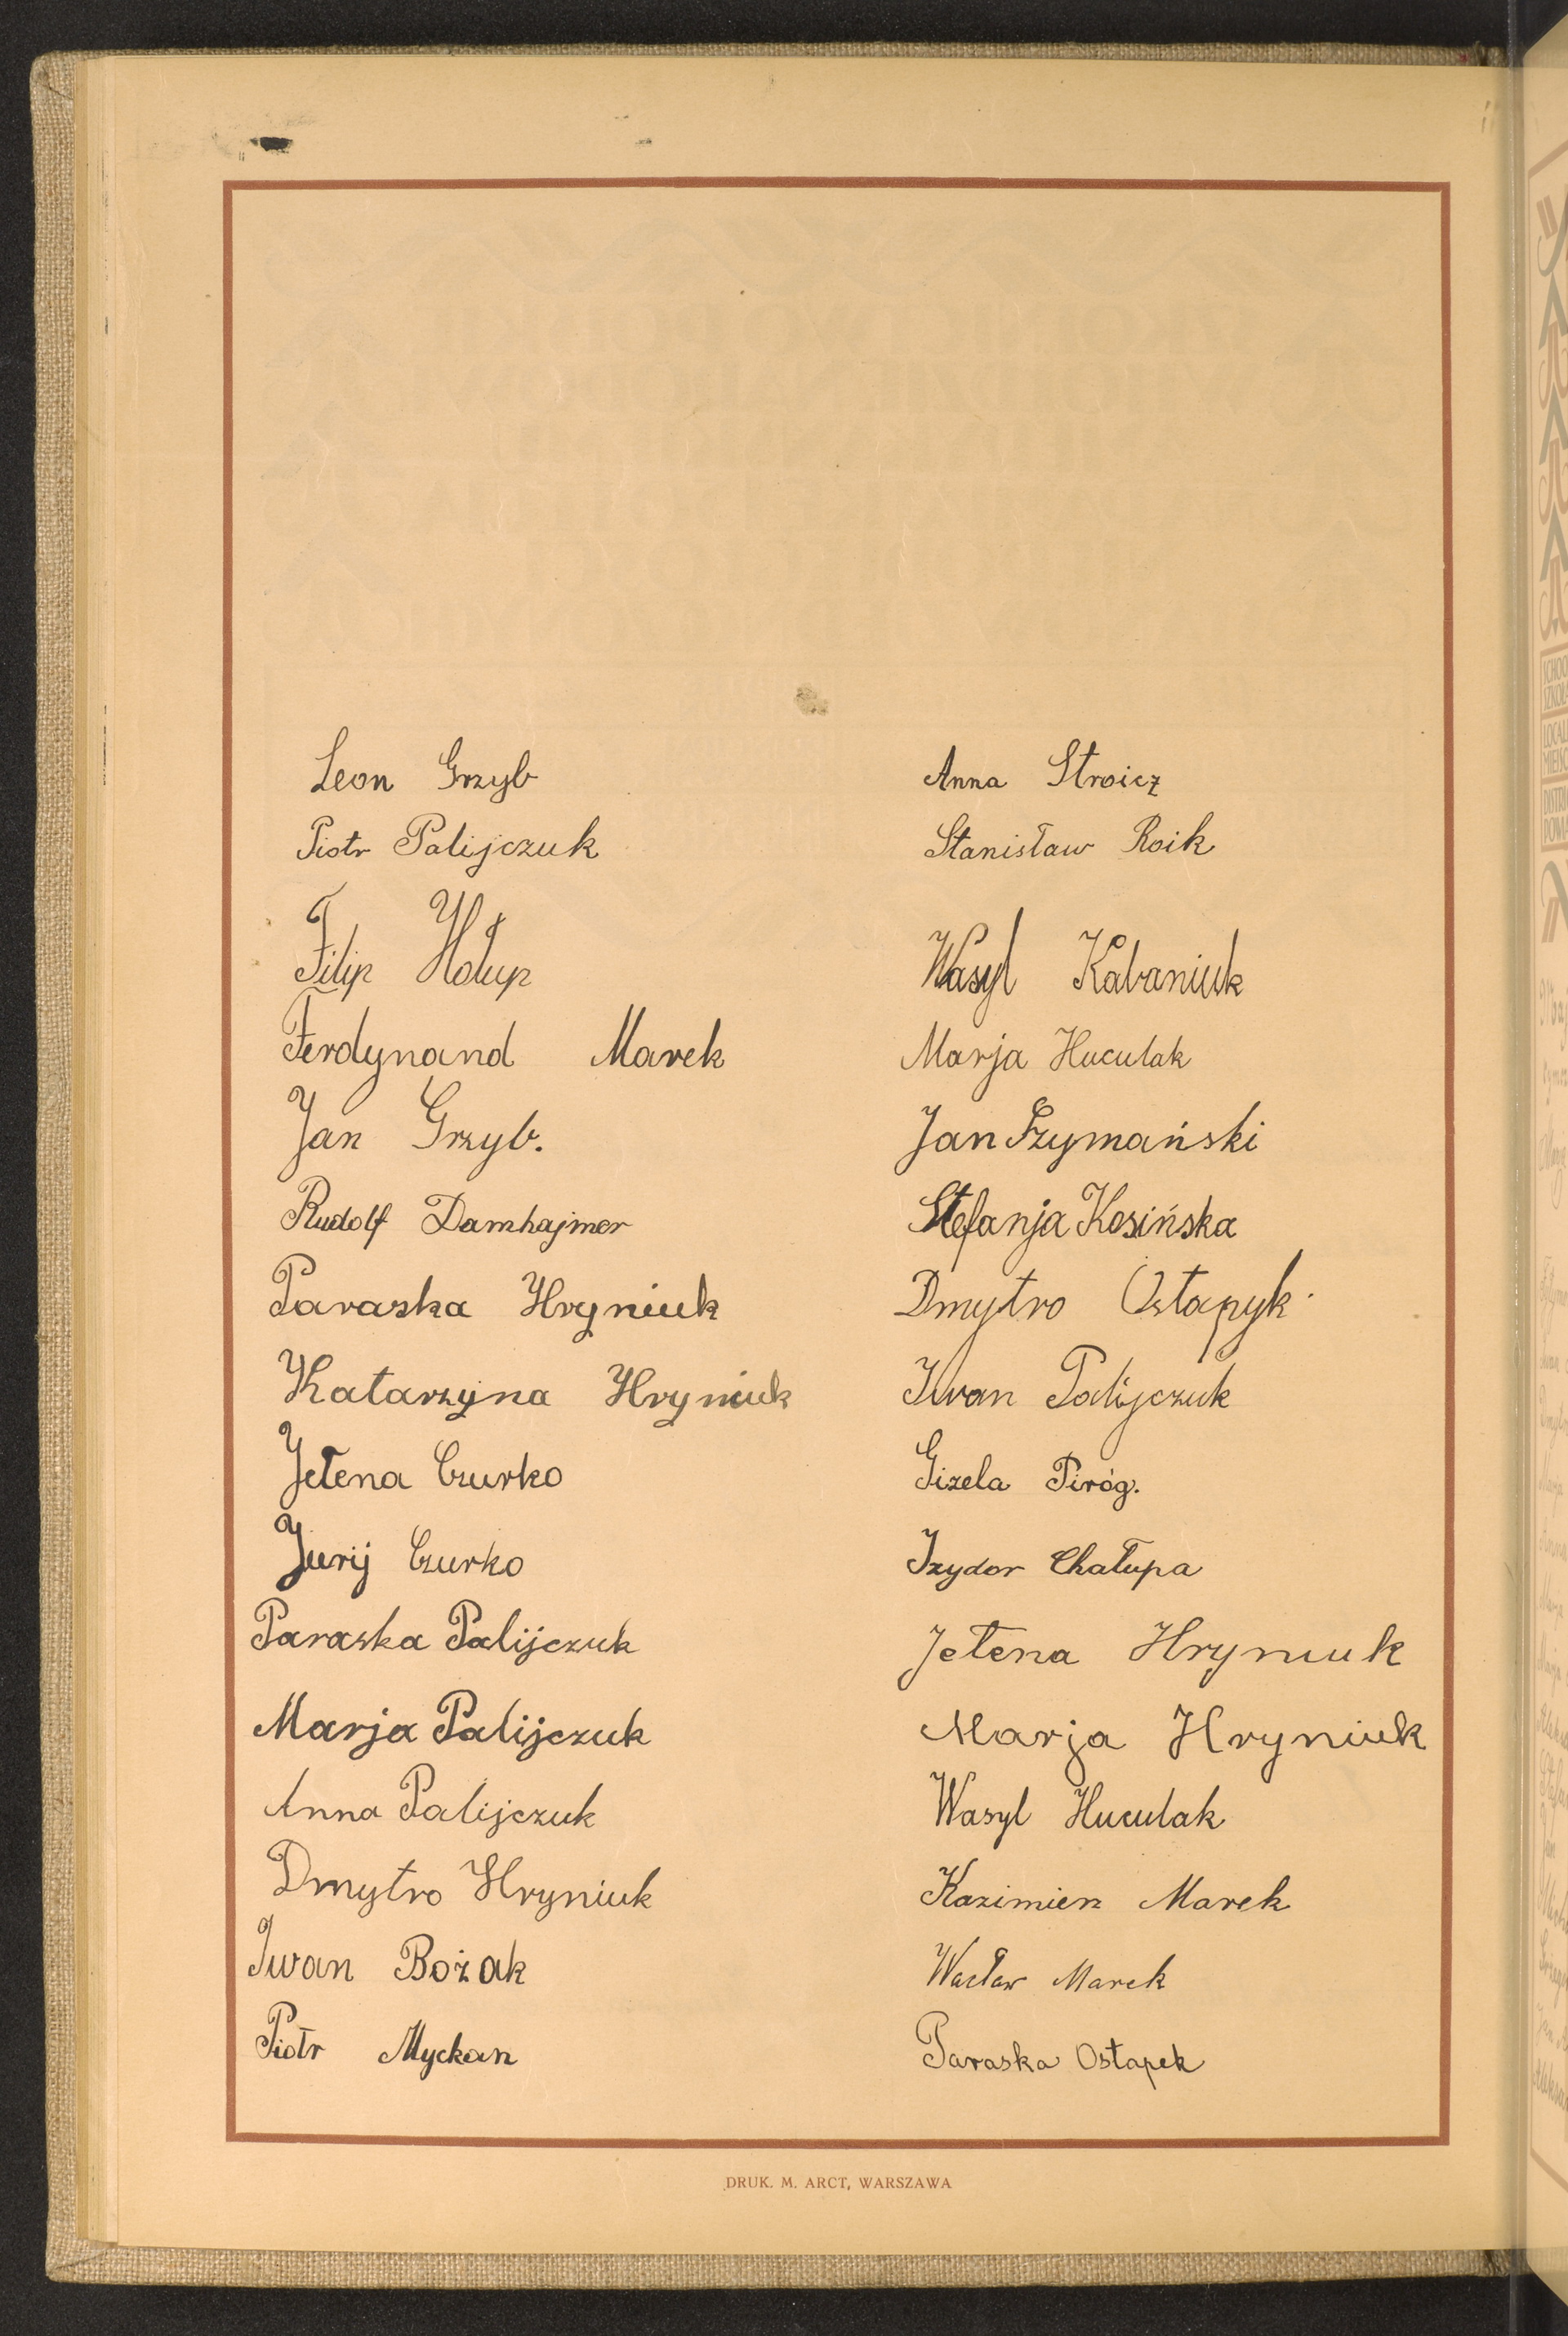 Leon Grzyb
Piotr Palijczuk
Filip Hołup
Ferdynand Marek
Jan Grzyb.
Rudolf Damhajmer
Paraska Hryniuk
Katarzyna Hryniuk
Jełena Czurko
Jurij Czurko
Paraska Palijczuk
Marja Palijczuk
Anna Palijczuk
Dmytro Hryniuk
Iwan Bożak
Piotr Myckan
Anna Stroicz
Stanisław Roik
Wasyl Kabaniuk
Marja Huculak
Jan Szymański
Stefanja Kosińska
Dmytro Ostapyk
Iwan Palijczuk
Gizela Piróg.
Izydor Chałupa
Jełena Hryniuk
Marja Hryniuk
Wasyl Huculak
Kazimierz Marek
Wacław Marek
Paraska Ostapek
DRUK. M. ARCT, WARSZAWA